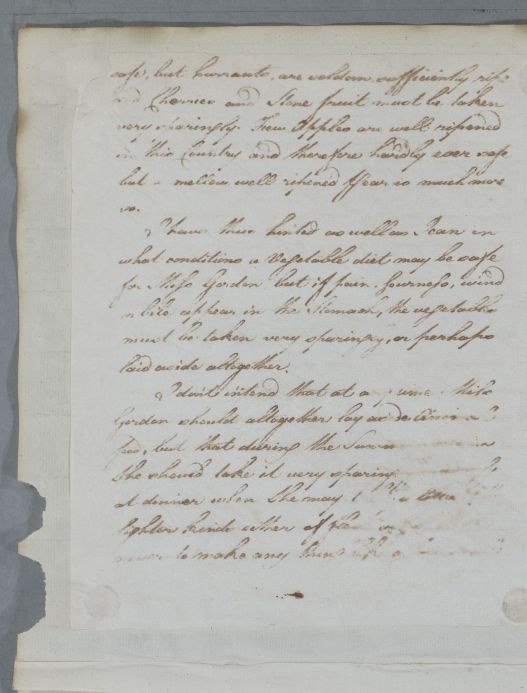 safe, but Currants, are seldom sufficiently ripe
and Cherries and Stone fruit must be taken
very sparingly. Few Apples are well ripened
in this Country and therefore hardly ever safe
but a mellow well ripened Pear is much more
so.
I have thus hinted as well as I can in
what conditions a Vegetable diet may be safe
for Miss Gordon but if pain, sourness, wind
or bile appear in the Stomach, the vegetable
must be taken very sparingly, or perhaps
laid aside altogether.
I don't intend that at any time Miss
Gordon should altogether lay aside Animal
food, but that during the
She should take it very sparing
at dinner when She may
lighter kinds either of
never to make any